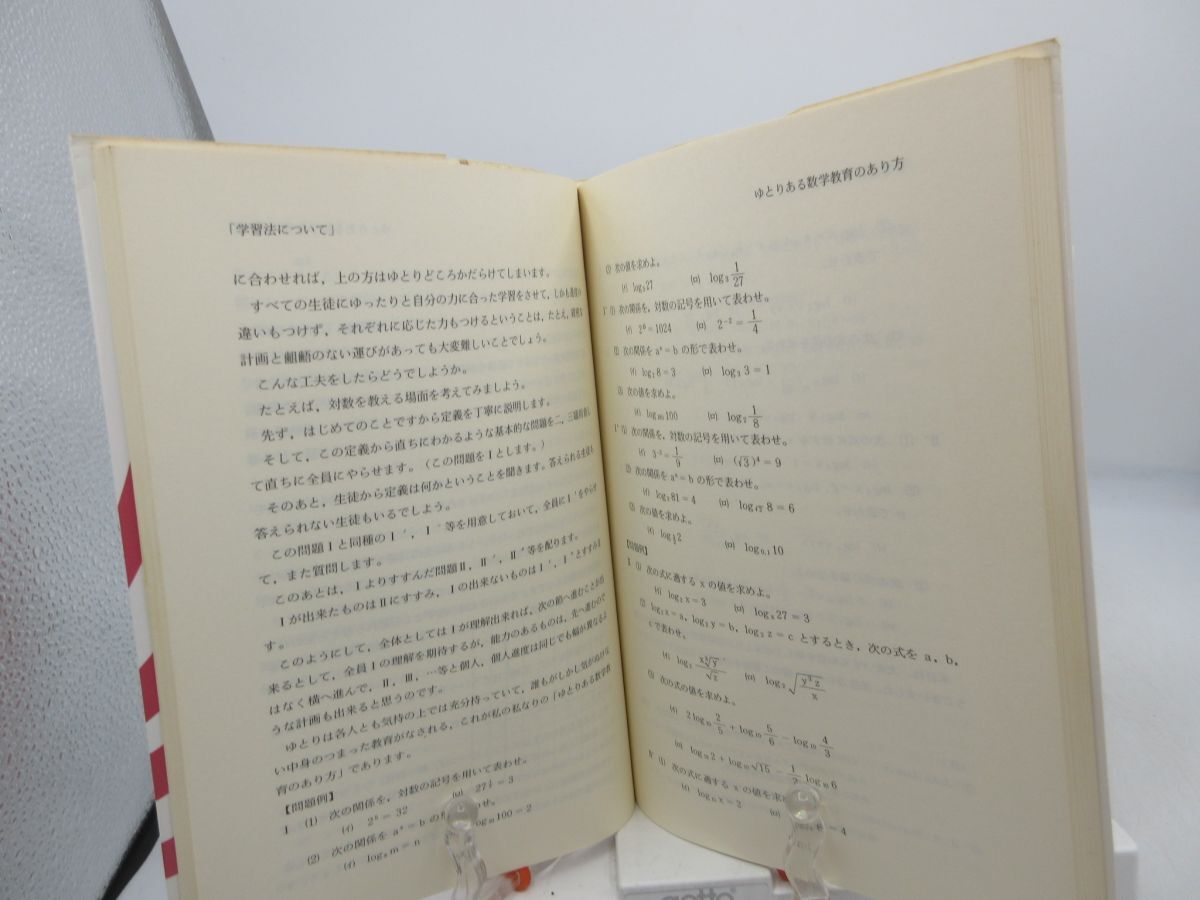 「学習法について」
に合わせれば，上の方はゆとりどころかだらけてしまいます。
すべての生徒にゆったりと自分の力に合った学習をさせて，しかも進度の
違いもつけず，それぞれに応じた力もつけるということは，たとえ，
計画と齟齬のない運びがあっても大変難しいことでしょう。
こんな工夫をしたらどうでしようか。
たとえば，対数を教える場面を考えてみましょう。
先ず，はじめてのことですから定義を丁寧に説明します。
そして，この定義から直ちにわかるような基本的な問題を二，三題
て直ちに全員にやらせます。（この問題をⅠとします。）
そのあと，生徒から定義は何かということを聞きます。答えられる生徒も
答えられない生徒もいるでしよう。
この問題Ⅰと同種のⅠ′，Ⅰ″等を用意しておいて，全員にⅠ′をやらせ
て，また質問します。
このあとは，Ⅰよりすすんだ問題Ⅱ，Ⅱ′，Ⅱ″等を配ります。
Ⅰが出来たものはⅡにすすみ，Ⅰの出来ないものはⅠ′，Ⅰ″とすすみま
す。
このようにして，全体としてはⅠが理解出来れば，次の節へ進むことが出
来るとして，全員Ⅰの理解を期待するが，能力のあるものは，先へ進むので
はなく横へ進んで，Ⅱ，Ⅲ，…等と個人，個人進度は同じでも幅が異なるよ
うな計画も出来ると思うのです。
ゆとりは各人とも気持の上では充分持っていて，誰もがしかし気がぬけな
い中身のつまった教育がなされる，これが私の私なりの「ゆとりある数学教
育のあり方」であります。
【問題例】
Ⅰ (1) 次の関係を，対数の記号を用いて表わせ。
(イ) 2⁵＝32 (ロ) 27＝3
(2) 次の関係を aˣ＝b の形 わせ。
(イ) logₐ m＝n log₁₀100＝2
ゆとりある数学教育のあり方
(3) 次の値を求めよ。
(イ) log₃27 (ロ) log₃ 1/27
Ⅰ′ (1) 次の関係を，対数の記号を用いて表わせ。
(イ) 2＝1024 (ロ) 2⁻²＝1/4
(2) 次の関係を aˣ＝b の形で表わせ。
(イ) log₂ 8＝3 (ロ) log₃ 3＝1
(3) 次の値を求めよ。
(イ) log₁₀ 100 (ロ) log₂ 1/8
Ⅰ″ (1) 次の関係を，対数の記号を用いて表わせ。
(イ) 3⁻²＝1/9 (ロ) (√3)⁴＝9
(2) 次の関係を aˣ＝b の形で表わせ。
(イ) log₃ 81＝4 (ロ) log√2 8＝6
(3) 次の値を求めよ。
(イ) log 2 (ロ) log₀.₁ 10
【問題例】
Ⅱ (1) 次の式に適する x の値を求めよ。
(イ) log₂ x＝3 (ロ) logₓ 27＝3
(2) log₂ x＝a，log₂ y＝b，log₂ z＝c とするとき，次の式を a，b，
c で表わせ。
(3) 次の式の値を求めよ。
(イ) 2 log₁₀ 2/5 ＋log₁₀ 5/6 －log₁₀ 4/3
(ロ) log₁₀ 2＋log₁₀ √15 － 1/2 log₁₀ 6
Ⅱ′ (1) 次の式に適する x の値を求